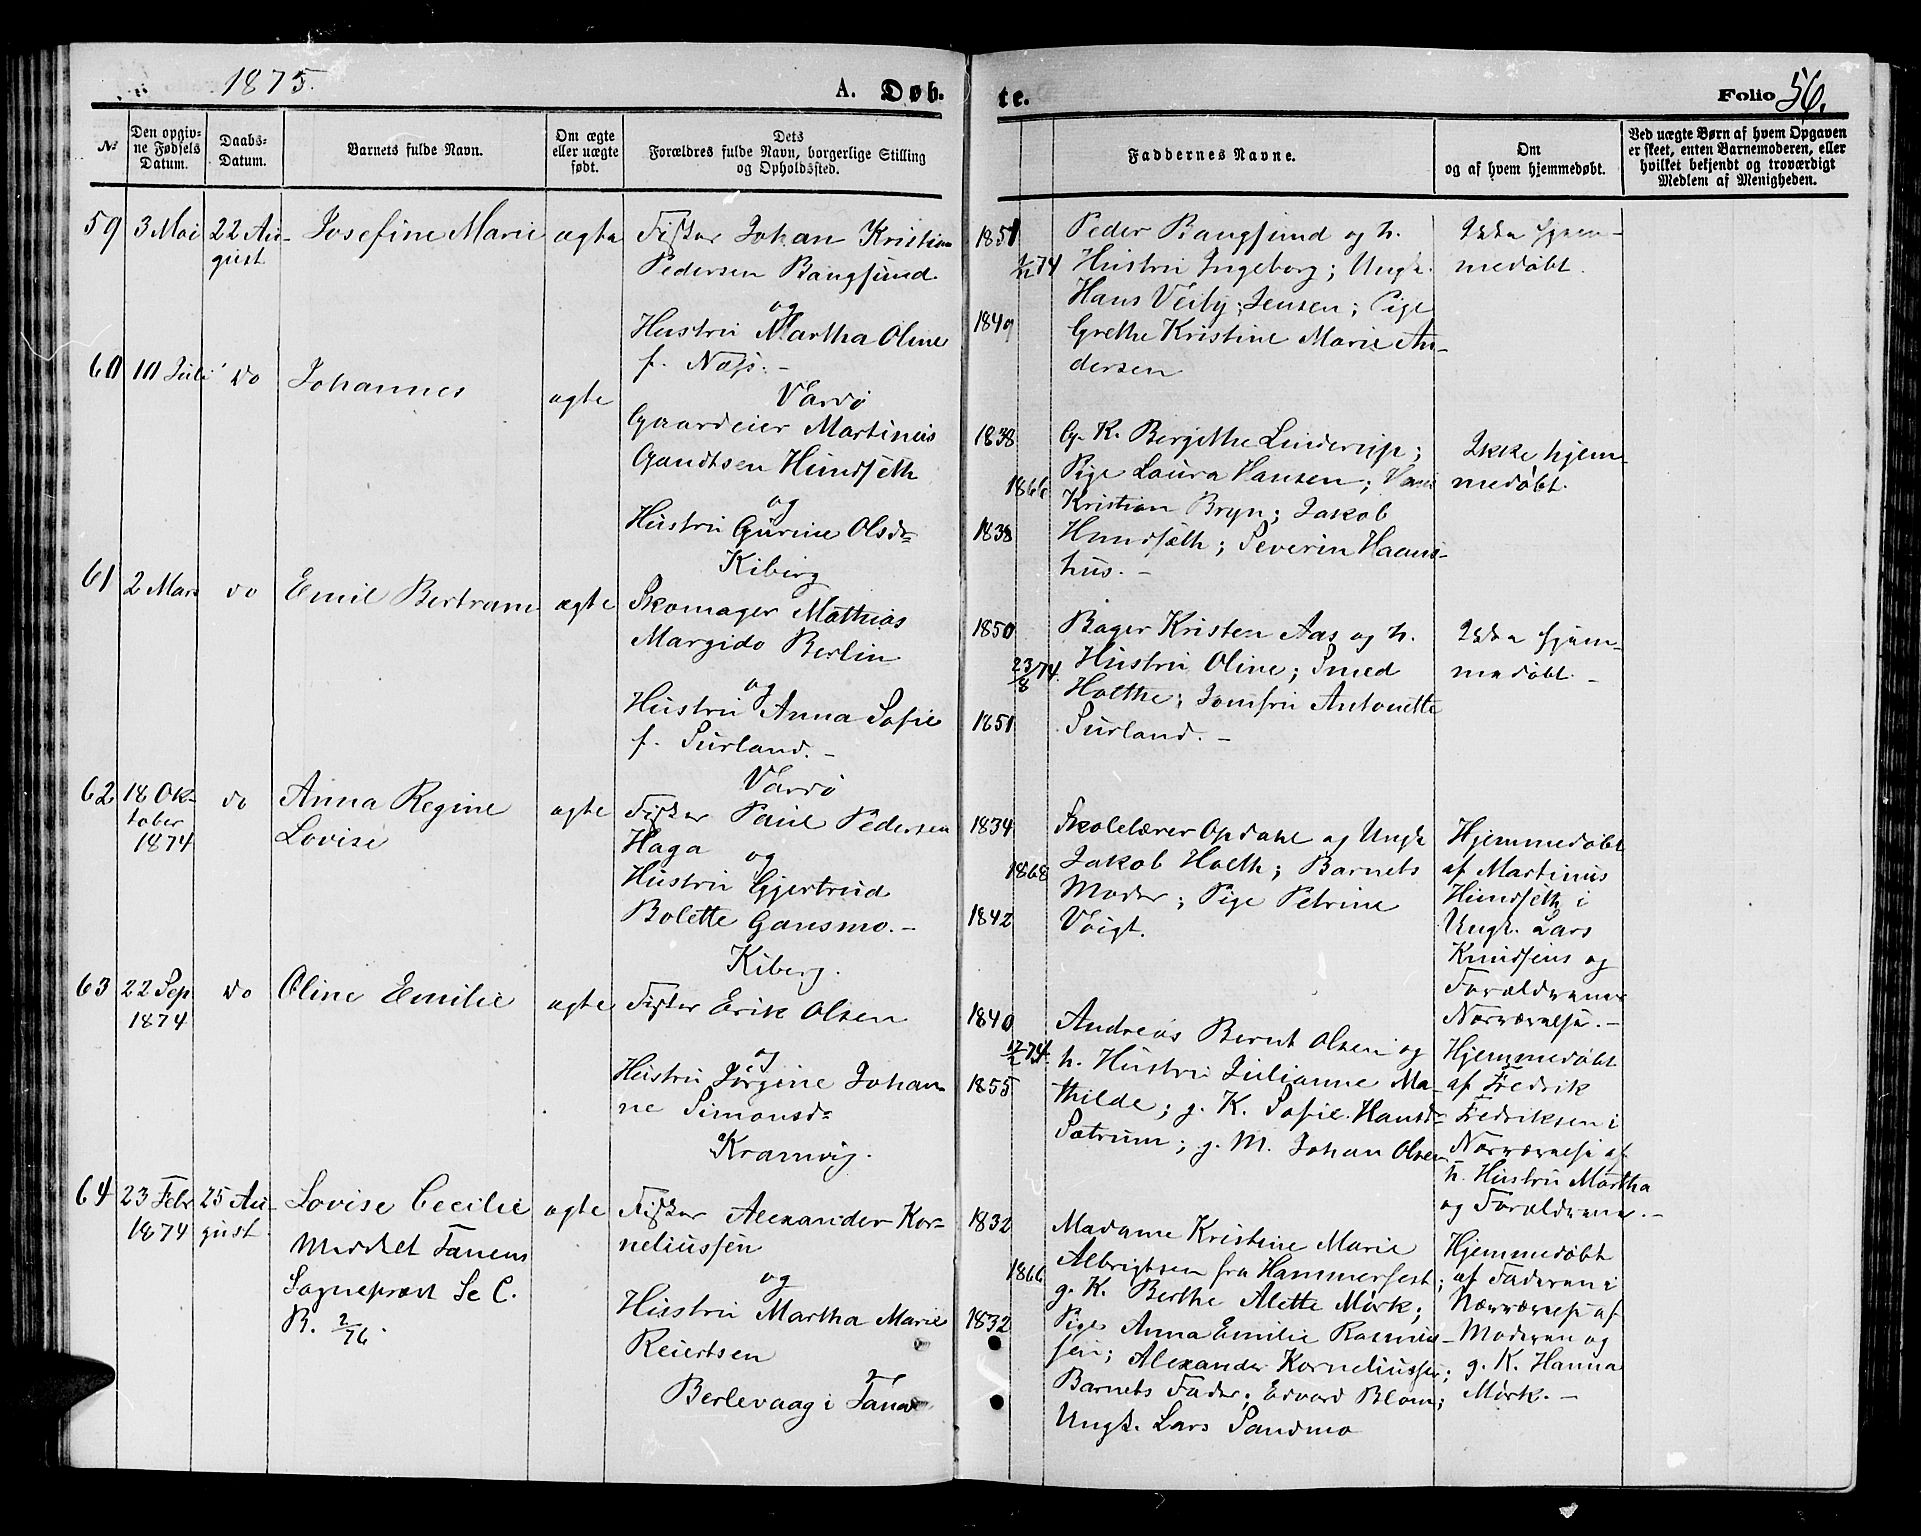 1875.
A. Døb-
te.
Folio 56.
No
Den opgiv-
ne Fødsels
Datum.
Daabs-
Datum.
Barnets fulde Navn.
Om ægte
eller uægte
født.
Dets
Forældres fulde Navn, borgerlige Stilling
og Opholdssted.
Faddernes Navne.
Om
og af hvem hjemmedøbt.
Ved uægte Børn af hvem Opgaven
er skeet, enten Barnemoderen, eller
hvilket bekjendt og troværdigt
Medlem af Menigheden.
59
3 Mai
22 Au-
gust
Josefine Marie
ægte
Fisker Johan Kristian
Pedersen Bangsund
og
Hustru Martha Oline
f. Næss. -
Vardø
1851
1/11 74
1849
Peder Bangsund og h.
Hustru Ingeborg; Ungk.
Hans Veiby; Jensen; Pige
Grethe Kristine Marie An-
dersen
Ikke hjem-
medøbt.
60
10 Juli
do
Johannes
ægte
Gaardeier Martinus
Gandtsen Hundseth
og
Hustru Gurine Olsd=
Kiberg
1838
1866
1838
G. K. Bergithe Linderupp;
Pige Laura Hansen; Hans
Kristian Bryn; Jakob
Hundseth; Severin Haans-
hus. -
Ikke hjem-
medøbt.
61
2 Mars
do
Emil Bertram
ægte
Skomager Mathias
Margido Berlin
og
Hustru Anna Sofie
f. Surland. -
Vardø
1850
23/8 74.
1851
Bager Kristen Aas og h.
Hustru Oline; Smed
Holthe; Jomfru Antonette
Surland. -
Ikke hjem-
medøbt. -
62
18 Ok-
tober
1874
do
Anna Regine
Lovise
ægte
Fisker Paul Pedersen
Haga
og
Hustru Gjertrud
Bolette Gansmo. -
Kiberg.
1834
1868
1842
Skolelærer Opdahl og Ungk
Jakob Holth; Barnets
Moder; Pige Petrine
Voigt.
Hjemmedøbt
af Martinus
Hundseth i
Ungk. Lars
Knudsens og
Forældrenes
Nærværelse. -
63
22 Sep
1874
do
Oline Emilie
ægte
Fisker Erik Olsen
og
Hustru Jørgine Johan-
ne Simonsd=
Kramvig.
1840
74.
1855
Andreas Bernt Olsen og
h. Hustru Julianne Ma-
thilde; g. K. Sofie Hansd=
Sætrum; g. M. Johan Olsen
Hjemmedøbt
af Fredrik
Fredriksen i
Nærværelse af
h. Hustru Martha
og Forældrene. -
64
23 Febr
1874
25 Au-
gust
Lovise Cecilie
Meddelt Tanens
Sogneprest Se C.
B. 2/76.
ægte
Fisker Alexander Kor-
neliussen
og
Hustru Martha Marie
Reiertsen
Berlevaag i Tana
1832
1866
1832
Madame Kristine Marie
Albrigtsen fra Hammerfest;
g. K. Berthe Alette Mørk;
Pige Anna Emilie Rasmus-
sen; Alexander Korneliussen;
Barnets Fader; Edvard Blom;
Ungk. Lars Sandmo
Hjemmedøbt
af Faderen i
Nærværelse af
Moderen og
g. K. Hanna
Mørk. -